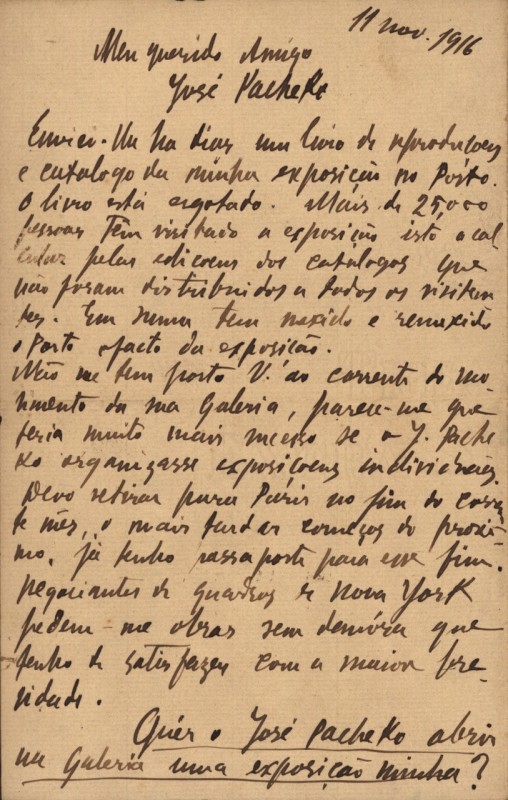 11 nov. 1916
Meu querido Amigo
José Pacheko
Enviei-lhe ha dias um livro de reproduçoens
e catalogo da minha exposição no Pórto.
O livro está esgotado. Mais de 25,000
pessoas têm visitado a exposição isto a cal
cular pelas edicoens dos catalogos que
não foram distribuidos a todos os visitan
tes. Em suma tem mexido e remexido
o Porto o facto da exposição.
Não me tem posto V. ao corrente do mo-
vimento da sua Galeria, parece-me que
teria muito mais sucesso se o J. Pache
ko organizasse exposiçoens individuáes.
Devo retirar para Páris no fim do corren
te mês, o mais tardar começos do proxi-
mo, já tenho passaporte para esse fim.
Negociantes de quadros de Nova York
pedem-me obras sem demóra que
tenho de satisfazer com a maior bre-
vidade.
Quér o José Pacheko abrir
na Galeria uma exposição minha?